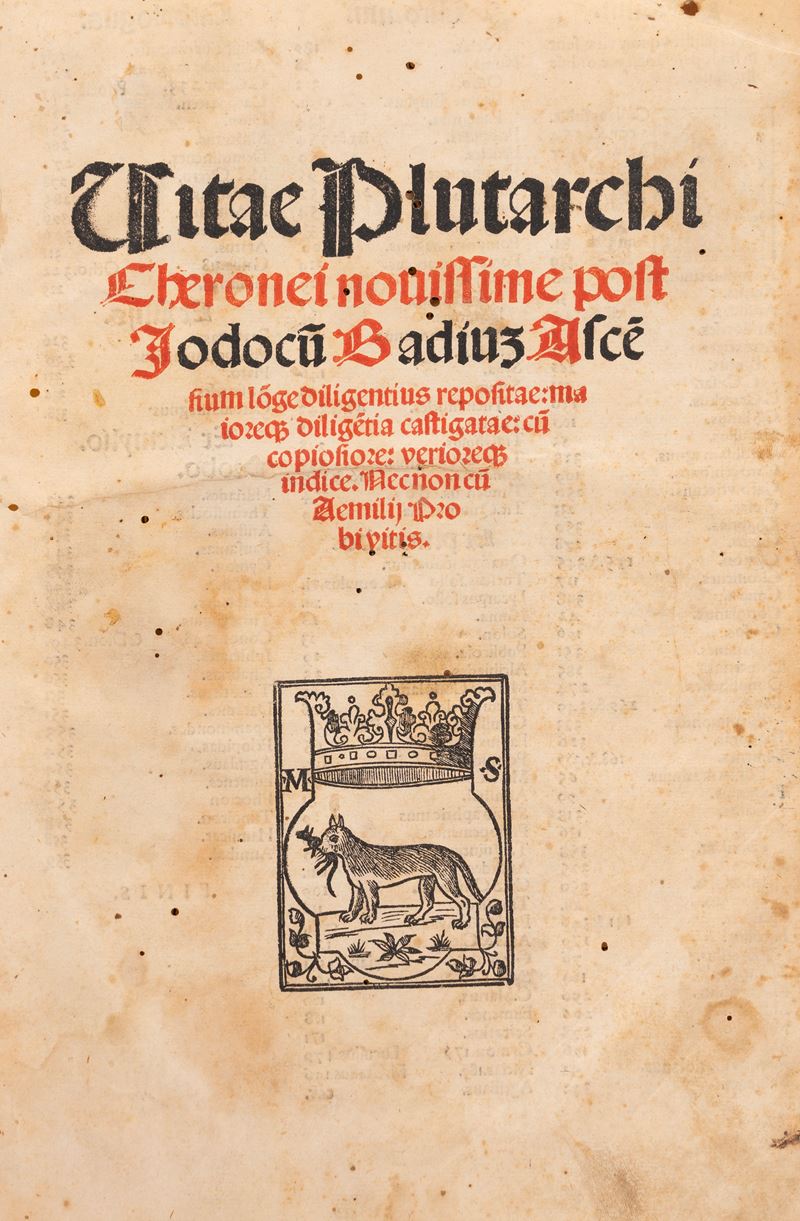 Uitae Plutarchi
Cheronei nouissime post
Jodocũ Badiuʒ Ascẽ
sium lõge diligentius repositae: ma
ioreqꝫ diligẽtia castigatae: cũ
copiosiore: verioreqꝫ
indice. Necnon cũ
Aemilij Pro
bi vitis.
M S